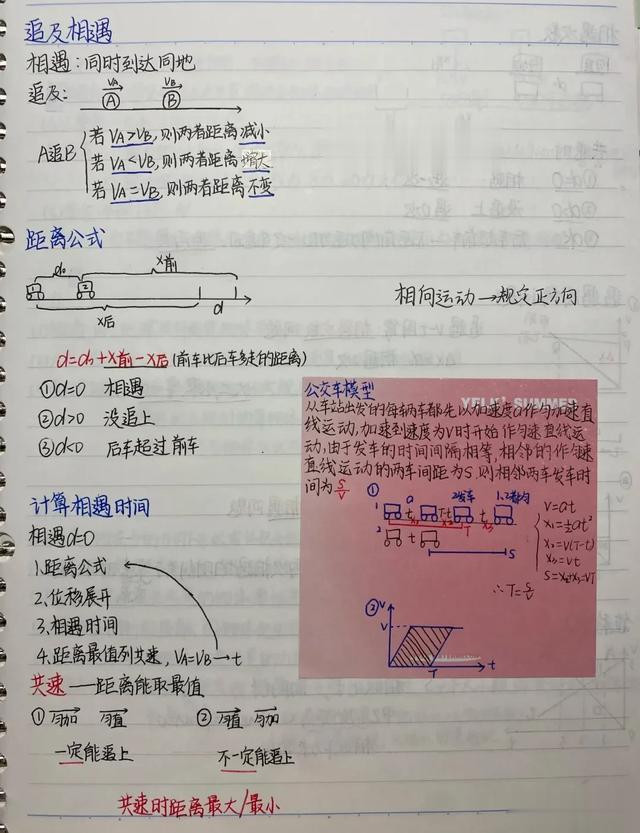 追及相遇
相遇:同时到达同地
追及: VA VB
A B
A追B
若VA>VB,则两者距离减小
若VA<VB,则两者距离增大
若VA=VB,则两者距离不变
距离公式
d0 x前
1 2
x后 d
相向运动→规定正方向
d=d0+x前-x后(前车比后车多走的距离)
①d=0 相遇
②d>0 没追上
③d<0 后车超过前车
计算相遇时间
相遇d=0
1.距离公式
2.位移展开
3.相遇时间
4.距离最值列共速,VA=VB→t
共速——距离能取最值
①匀加 匀值 ②匀值 匀加
一定能追上 不一定能追上
共速时距离最大/最小
YELL SUMMER
公交车模型
从车站出发的每辆车都先以加速度a作匀加速直
线运动,加速到速度为V时开始作匀速直线运
动,由于发车的时间间隔相等,相邻的作匀速
直线运动的两车间距为S,则相邻两车发车时
间为S/V
①
a 2发车 1.2都匀
1 t T-t t
x1 x2 T x3
2 t
S
V=at
x1=½at²
x2=V(T-t)
x3=Vt
S=x2+x3=VT
∴T=S/V
②
V
V
T t